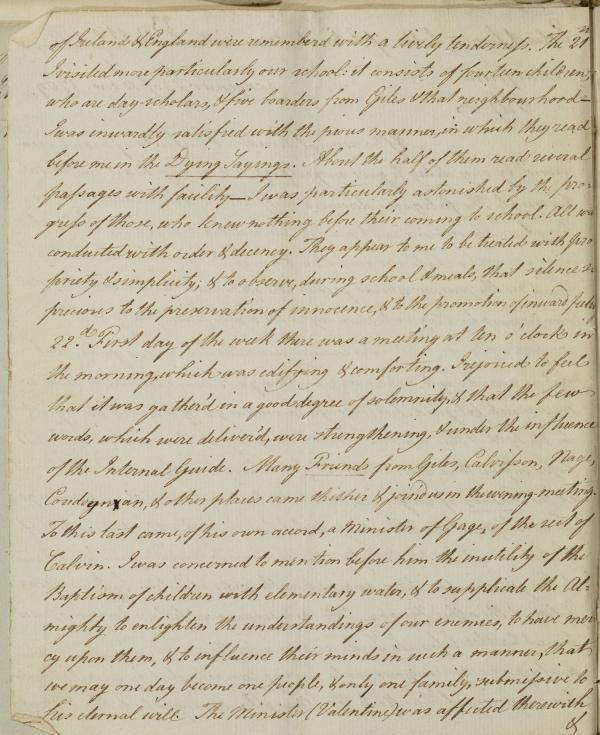 of Ireland & England were remember'd with a lively tenderness. The 21st
I visited more particularly our school: it consists of fourteen children,
who are day-scholars, & five boarders from Giles & that neighbourhood—
I was inwardly satisfied with the pious manner, in which they read
before me in the Dying Sayings. About the half of them read several
passages with facility— I was particularly astonished by the pro-
gress of those, who knew nothing before their coming to school. All was
conducted with order & decency. They appear to me to be treated with pro-
priety & simplicity; & to observe, during school & meals, that silence so
precious to the preservation of innocence, & to the promotion of inward
22.d First day of the week there was a meeting at ten o'clock in
the morning, which was edifying & comforting. I rejoiced to feel
that it was gather'd in a good degree of solemnity, & that the few
words, which were deliver'd, were strengthening, & under the influence
of the Internal Guide. Many Friends from Giles, Calvisson, Nages,
& other places came thither & joined us in the evening meeting.
To this last came, of his own accord, a Minister of Gage, of the sect of
Calvin. I was concerned to mention before him the inutility of the
Baptism of children with elementary water, & to supplicate the Al-
mighty to enlighten the understandings of our enemies, to have mer-
cy upon them, & to influence their minds in such a manner, that
we may one day become one people, & only one family, submissive to
his eternal will. The Minister (Valentine) was affected therewith
&